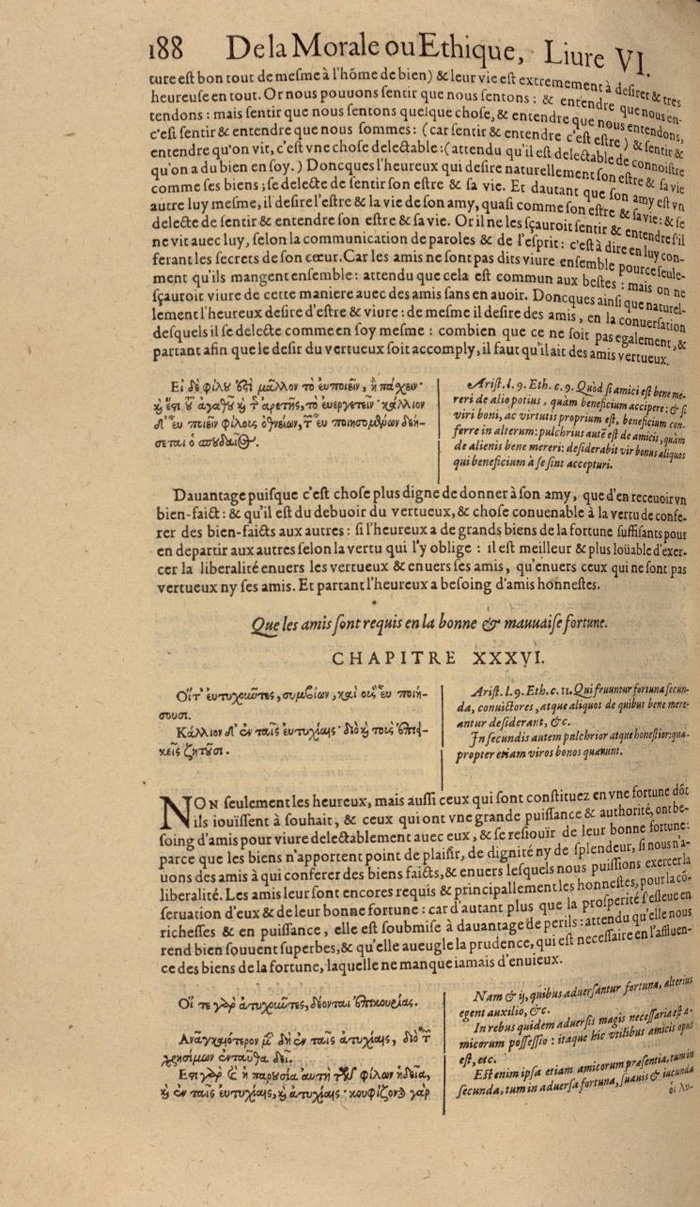 188 De la Morale ou Ethique, Liure VI.
ture est bon tout de mesme à l'hõme de bien) & leur vie est extremement à desirer & tres
heureuse en tout. Or nous pouuons sentir que nous sentons: & entendre que nous en-
tendons: mais sentir que nous sentons quelque chose, & entendre que nous entendons,
c'est sentir & entendre que nous sommes: (car sentir & entendre c'est estre) & sentir &
entendre qu'on vit, c'est vne chose delectable: (attendu qu'il est delectable de connoistre
qu'on a du bien en soy.) Doncques l'heureux qui desire naturellement son estre & sa vie
comme ses biens; se delecte de sentir son estre & sa vie. Et dautant que son amy est vn
autre luy mesme, il desire l'estre & la vie de son amy, quasi comme son estre & sa vie: & se
delecte de sentir & entendre son estre & sa vie. Or il ne les sçauroit sentir & entendre s'il
ne vit auec luy, selon la communication de paroles & de l'esprit: c'est à dire en luy con-
ferant les secrets de son cœur. Car les amis ne sont pas dits viure ensemble pource seule-
ment qu'ils mangent ensemble: attendu que cela est commun aux bestes: mais on ne
sçauroit viure de cette maniere auec des amis sans en auoir. Doncques ainsi que naturel-
lement l'heureux desire d'estre & viure: de mesme il desire des amis, en la conuersation
desquels il se delecte comme en soy mesme: combien que ce ne soit pas egalement, &
partant afin que le desir du vertueux soit accomply, il faut qu'il ait des amis vertueux.
Εἰ δὲ φίλου ἐστὶ μᾶλλον τὸ εὐποιεῖν, ἢ πάχειν·
καὶ ἔστι τοῦ ἀγαθοῦ καὶ τῆς ἀρετῆς, τὸ εὐεργετεῖν· κάλλιον
δ' εὖ ποιεῖν φίλους ὀθνείων, τῶν εὖ πεισομένων δεή-
σεται ὁ σπουδαῖος.
Arist. l. 9. Eth. c. 9. Quòd si amici est bene me-
reri de alio potius, quàm beneficium accipere: & si
viri boni, ac virtutis proprium est, beneficium con-
ferre in alterum: pulchrius autẽ est de amicis, quàm
de alienis bene mereri: desiderabit vir bonus aliquos
qui beneficium à se sint accepturi.
Dauantage puisque c'est chose plus digne de donner à son amy, que d'en receuoir vn
bien-faict: & qu'il est du debuoir du vertueux, & chose conuenable à la vertu de confe-
rer des bien-faicts aux autres: si l'heureux a de grands biens de la fortune suffisants pour
en departir aux autres selon la vertu qui l'y oblige: il est meilleur & plus loüable d'exer-
cer la liberalité enuers les vertueux & enuers ses amis, qu'enuers ceux qui ne sont pas
vertueux ny ses amis. Et partant l'heureux a besoing d'amis honnestes.
Que les amis sont requis en la bonne & mauuaise fortune.
CHAPITRE XXXVI.
Οἵτ' εὐτυχοῦντες, συμβίων, καὶ οὓς εὖ ποιή-
σουσι.
Κάλλιον δ' ἐν ταῖς εὐτυχίαις· διὸ καὶ τοὺς ἐπιει-
κεῖς ζητοῦσι.
Arist. l. 9. Eth. c. 11. Qui fruuntur fortuna secun-
da, conuictores, atque aliquos de quibus bene mere-
antur desiderant, &c.
In secundis autem pulchrior atque honestior: qua-
propter etiam viros bonos quærunt.
NON seulement les heureux, mais aussi ceux qui sont constituez en vne fortune dõt
ils iouïssent à souhait, & ceux qui ont vne grande puissance & authorité, ont be-
soing d'amis pour viure delectablement auec eux, & se resiouïr de leur bonne fortune:
parce que les biens n'apportent point de plaisir, de dignité ny de splendeur, si nous n'a-
uons des amis à qui conferer des biens faicts, & enuers lesquels nous puissions exercer la
liberalité. Les amis leur sont encores requis & principallement les honnestes, pour la cõ-
seruation d'eux & de leur bonne fortune: car d'autant plus que la prosperité s'esleue en
richesses & en puissance, elle est soubmise à dauantage de perils: attendu qu'elle nous
rend bien souuent superbes, & qu'elle aueugle la prudence, qui est necessaire en l'affluen-
ce des biens de la fortune, laquelle ne manque iamais d'enuieux.
Οἵ τε γὰρ ἀτυχοῦντες, δέονται ἐπικουρίας.
Ἀναγκαιότερον μὲν δὴ ἐν ταῖς ἀτυχίαις, διὸ τῶν
χρησίμων ἐνταῦθα δεῖ.
Ἔστι γὰρ καὶ ἡ παρουσία αὐτὴ τῶν φίλων ἡδεῖα,
καὶ ἐν ταῖς εὐτυχίαις, καὶ ἀτυχίαις· κουφίζονται γὰρ
Nam & ij, quibus aduersantur fortuna, alterius
egent auxilio, &c.
In rebus quidem aduersis magis necessaria est a-
micorum possessio: itaque hic vtilibus amicis opus
est, etc.
Est enim ipsa etiam amicorum præsentia, tum in
secunda, tum in aduersa fortuna, suauis & iucunda
οἱ λυ-